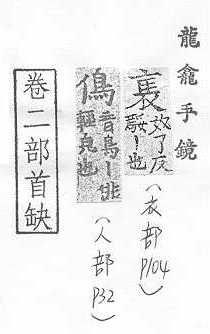 龍龕手鏡
褭 奴了反
騕丨也
(衣部 P104)
音鳥丨
輕皃也
(人部 P32)
卷二部首缺